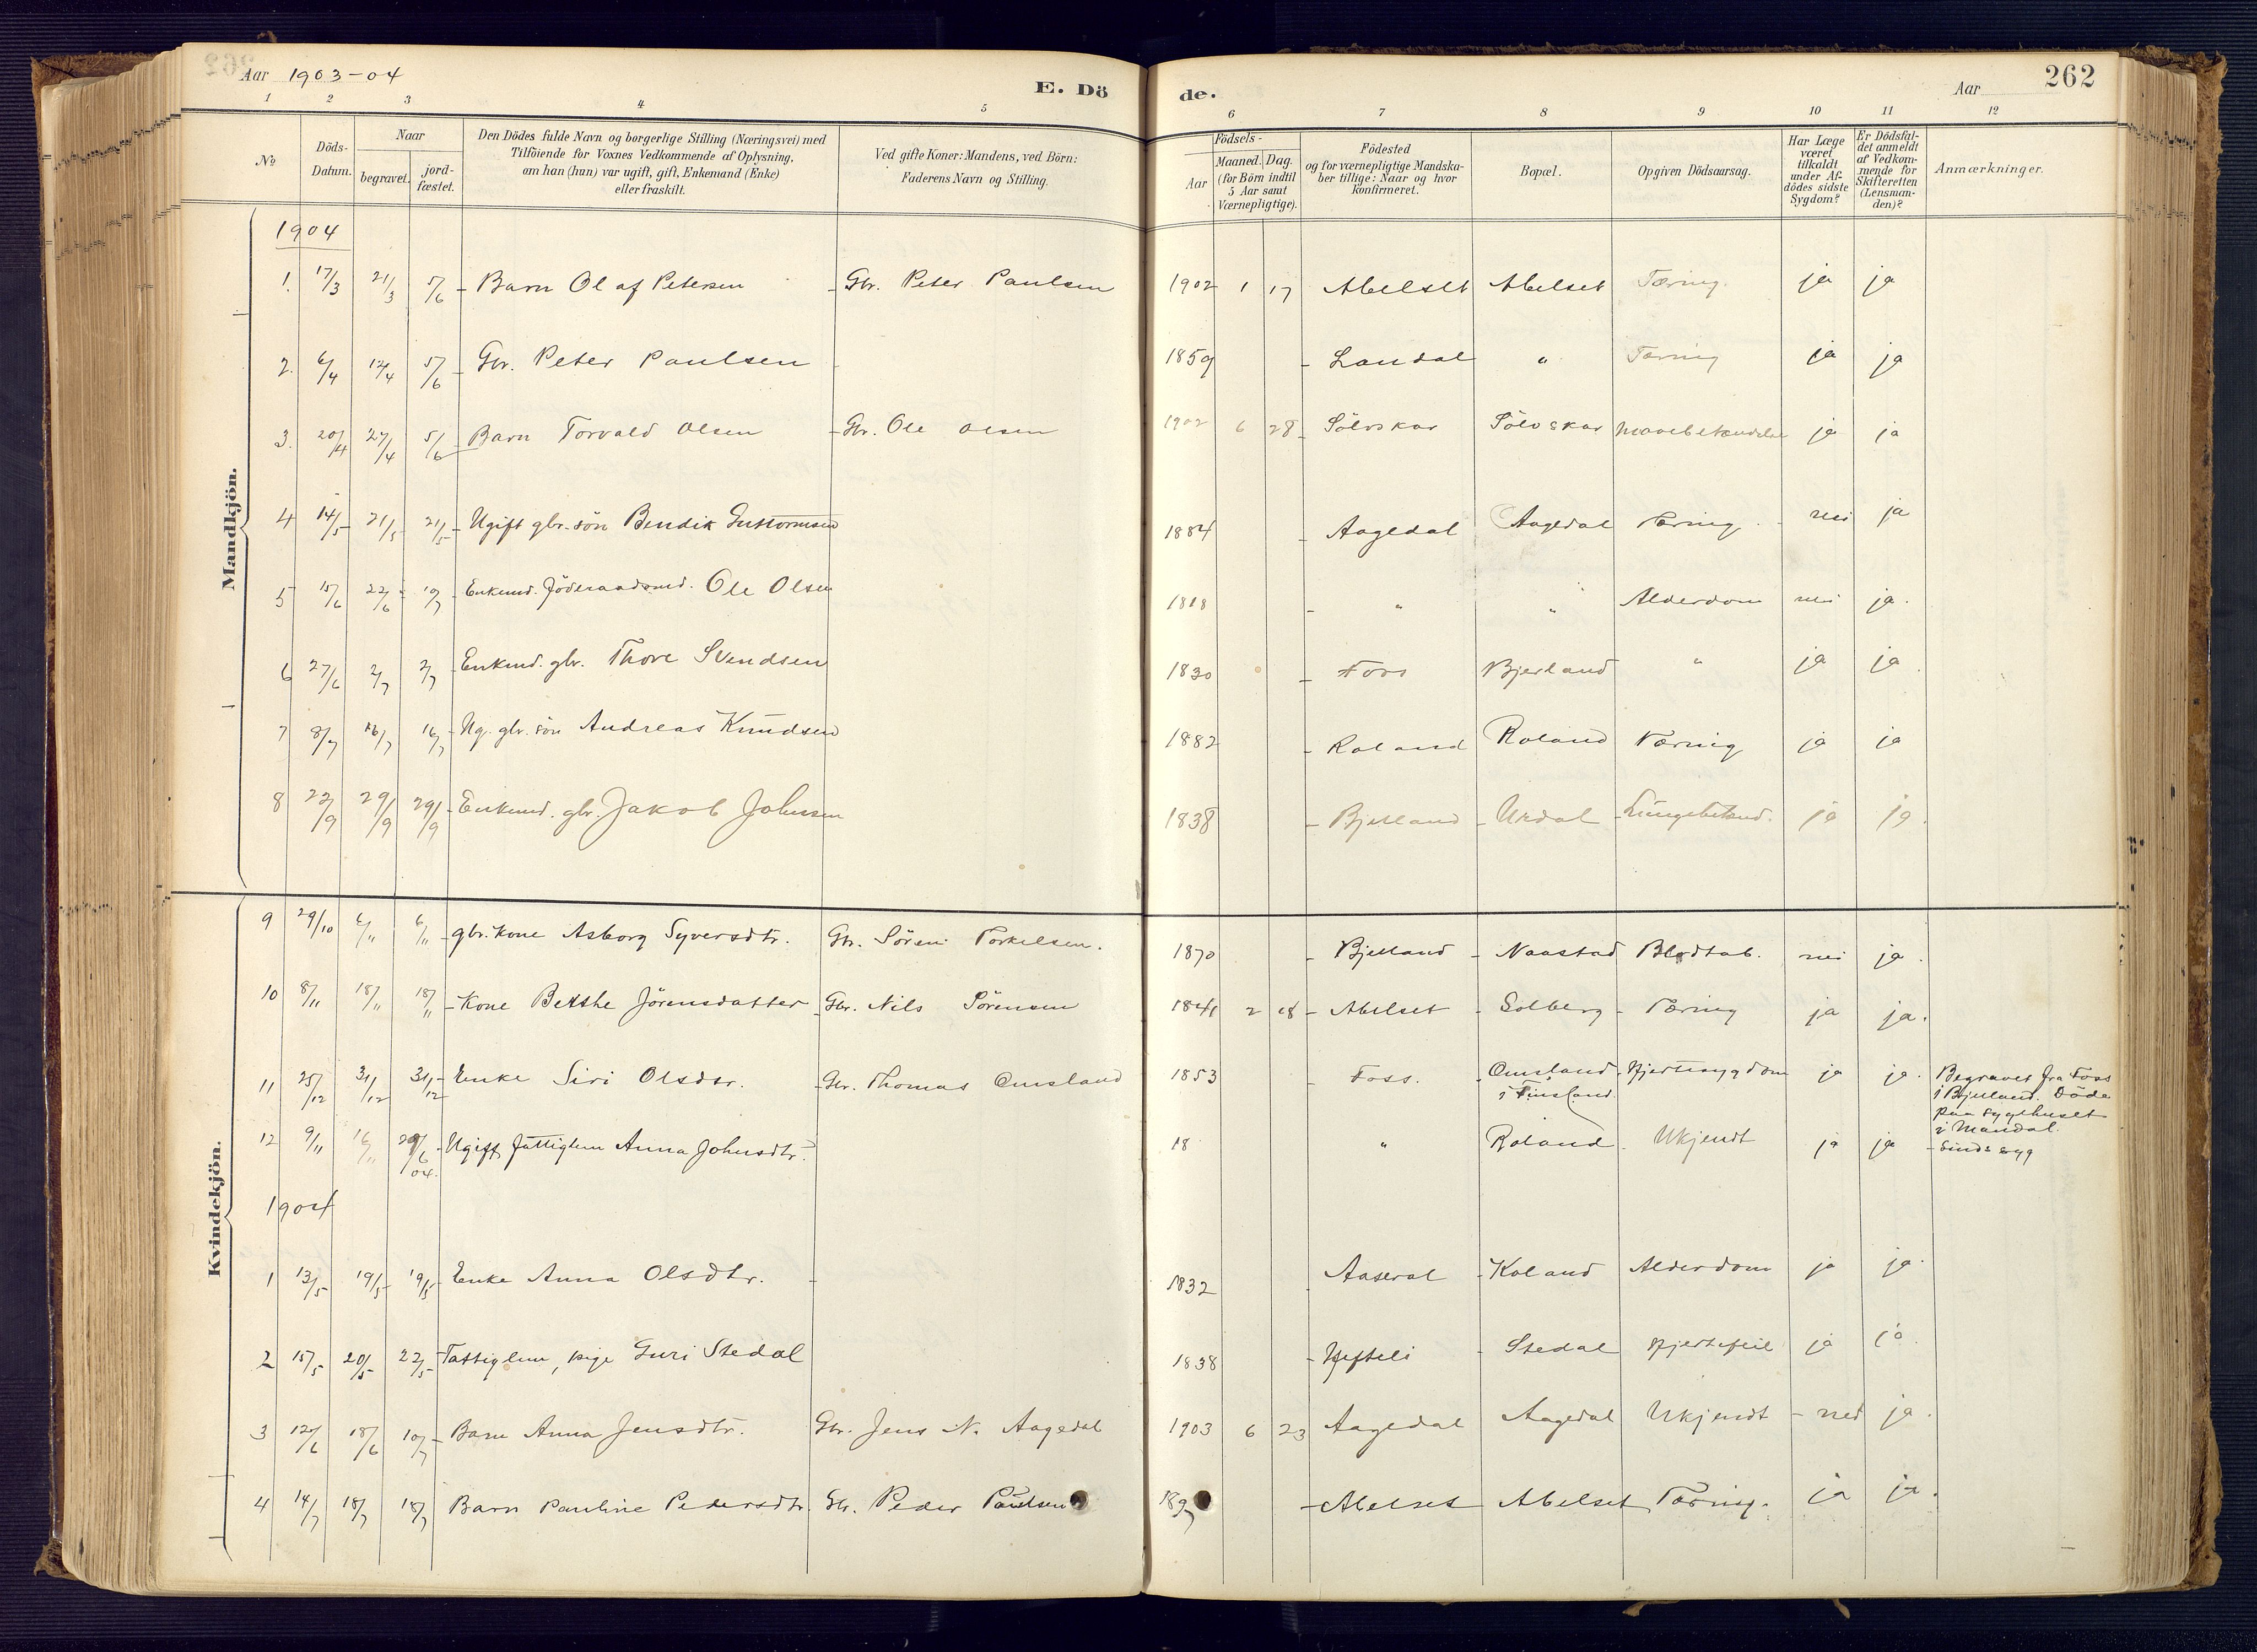 Aar 1903-04
E. Dö
de.
Aar
262
1 2 3 4 5 6 7 8 9 10 11 12
No
Döds-Datum.
Naar
begravet.
jord-fæstet.
Den Dödes fulde Navn og borgerlige Stilling (Næringsvei) med
Tilföiende for Voxnes Vedkommende af Oplysning,
om han (hun) var ugift, gift, Enkemand (Enke)
eller fraskilt.
Ved gifte Koner: Mandens, ved Börn:
Faderens Navn og Stilling.
Födsels-
Aar
Maaned. Dag.
(for Börn indtil
5 Aar samt
Værnepligtige).
Födested
og for værnepligtige Mandska-
ber tillige: Naar og hvor
konfirmeret.
Bopæl.
Opgiven Dödsaarsag.
Har Læge
været
tilkaldt
under Af-
dödes sidste
Sygdom?
Er Dödsfal-
det anmeldt
af Vedkom-
mende for
Skifteretten
(Lensman-
den)?
Anmærkninger.
Mandkjön.
1904
1. 17/3 21/3 5/6 Barn Olaf Petersen Gbr. Peter Paulsen 1902 1 17 Abelset Abelset Tæring ja ja
2. 6/4 12/4 5/6 Gbr. Peter Paulsen 1859 Laudal " Tæring ja ja
3. 20/4 27/4 5/6 Barn Torvald Olsen Gbr. Ole Olsen 1902 6 28 Sölvskar Sölvskar Mavebetændelse ja ja
4 14/5 21/5 21/5 Ugift gbr. sön Bendik Guttormsen 1884 Aagedal Aagedal Tæring nei ja
5 15/6 22/6 10/7 Enkmd. Föderaadsmd. Ole Olsen 1818 " " Alderdom nei ja.
6 27/6 2/7 2/7 Enkmd. gbr. Thore Svendsen 1830 Foss Bjerland " ja ja.
7 8/7 16/7 16/7 Ug. gbr. sön Andreas Knudsen 1882 Roland Roland Tæring ja ja
8 22/9 29/9 29/9 Enkmd. gbr. Jakob Johnsen 1838 Bjelland Urdal Lungebetænd. ja ja.
Kvindekjön.
9 29/10 6/11 6/11 gbr. kone Asborg Syversdtr. Gbr. Sören Torkelsen. 1870 Bjelland Naastad Blodtab. nei ja.
10 8/11 18/11 18/11 Kone Berthe Jörensdatter Gbr. Nils Sörensen 1841 2 18 Abelset Solberg Tæring ja ja.
11 25/12 31/12 31/12 Enke Siri Olsdtr. Gbr. Thomas Omsland 1853 Foss. Omsland i Finsland. Hjertesygdom ja ja. Begravet fra Foss
i Bjelland. Döde
paa sygehuset
i Mandal.
12 9/11 16/11 29/6 04. Ugift Fattiglem Anna Johnsdtr. 18 " Roland Ukjendt ja ja Sindssyg
1904
1 13/5 19/5 19/5 Enke Anna Olsdtr. 1832 Aaseral Koland Alderdom ja ja.
2 15/5 20/5 22/5 Fattiglem, pige Guri Stedal 1838 Hefteli Stedal Hjertefeil ja ja.
3 12/6 18/6 10/7 Barn Anna Jensdtr. Gbr. Jens N. Aagedal 1903 6 23 Aagedal Aagedal Ukjendt nei ja.
4 14/7 18/7 18/7 Barn Pauline Pedersdtr. Gbr. Peder Paulsen 1897 Abelset Abelset Tæring. ja ja.